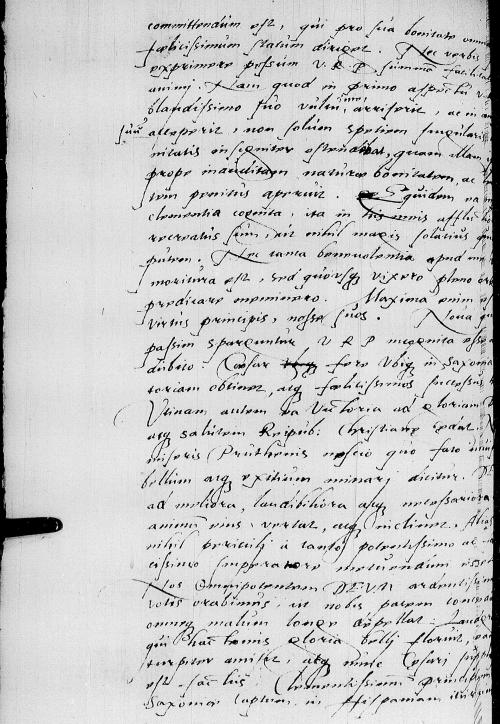 committendum est, qui pro sua bonitate omne
fœlicissimum statum diriget. Nec verbis
exprimere possum V. R. P. summa facilitat
animj. Nam quod in primo aspectu v
blandissimo suo vultu, arriserit, ac in
suu
acceperit, non solum speciem singulari
nitatis insigniter ostendebat, quam illam
prope inauditam, naturæ bonitatem, ac
tem penitus aperuit. Equidem ea
clementia cognita, ita in meis afflic
recreatus sum, ut nihil magis solatius
putem. Nec tanta benevolentia apud me
moritura est, sed quousq vixero pleno or
predicare meminero. Maxima enim e
virtus principis, nosse suos. Noua qu
passim sparguntur, V R P incognita esse
dubito. Cæsar fere vbiq in Saxonia
toriam obtinet, atq fœlicissimos successus
Vtinam autem ea Victoria ad gloriam
atq salutem Reipub: Christianæ cedat.
miseris Pruthenis nescio quo fato
bellum atq exitium minarj dicitur. D
ad meliora, laudibiliora atq necessariora
animum eius vertat, atq inclinet. Alias
nihil periculj à tanto potentissimo ac
cissimo Imperatore metuendum esse
Nos Omnipotentem DEVM ardentissim
votis orabimus, ut nobis pacem conced
omneq malum longe depellat. Landgr
qui hactenus gloria bellj floruit,
turpiter amisit, atq nunc Cæsarj supp
est factus. Clementissimi principis
Saxoniæ captum in Hispaniam itur